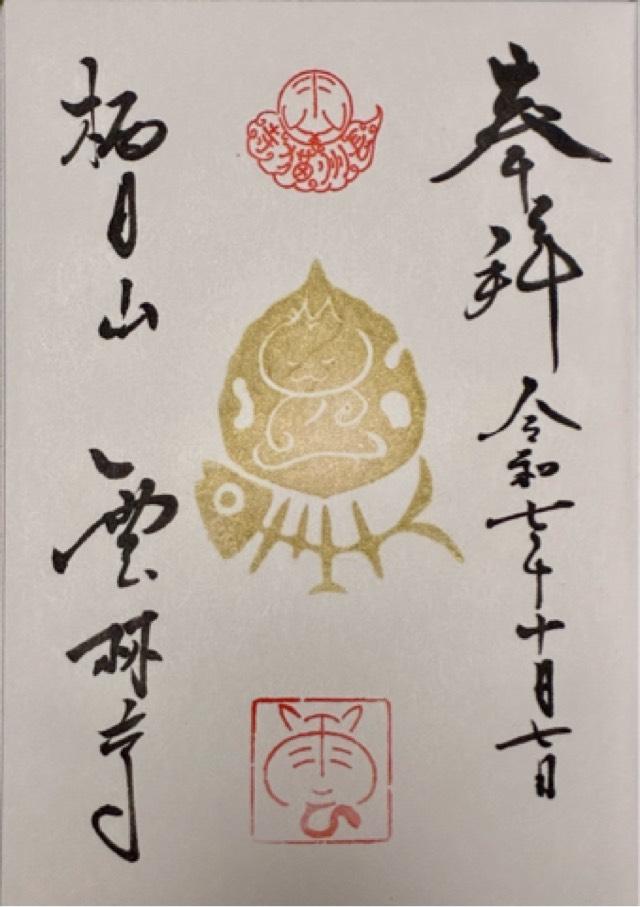 奉拝
令和七年十月七日
栖月山 雲林寺